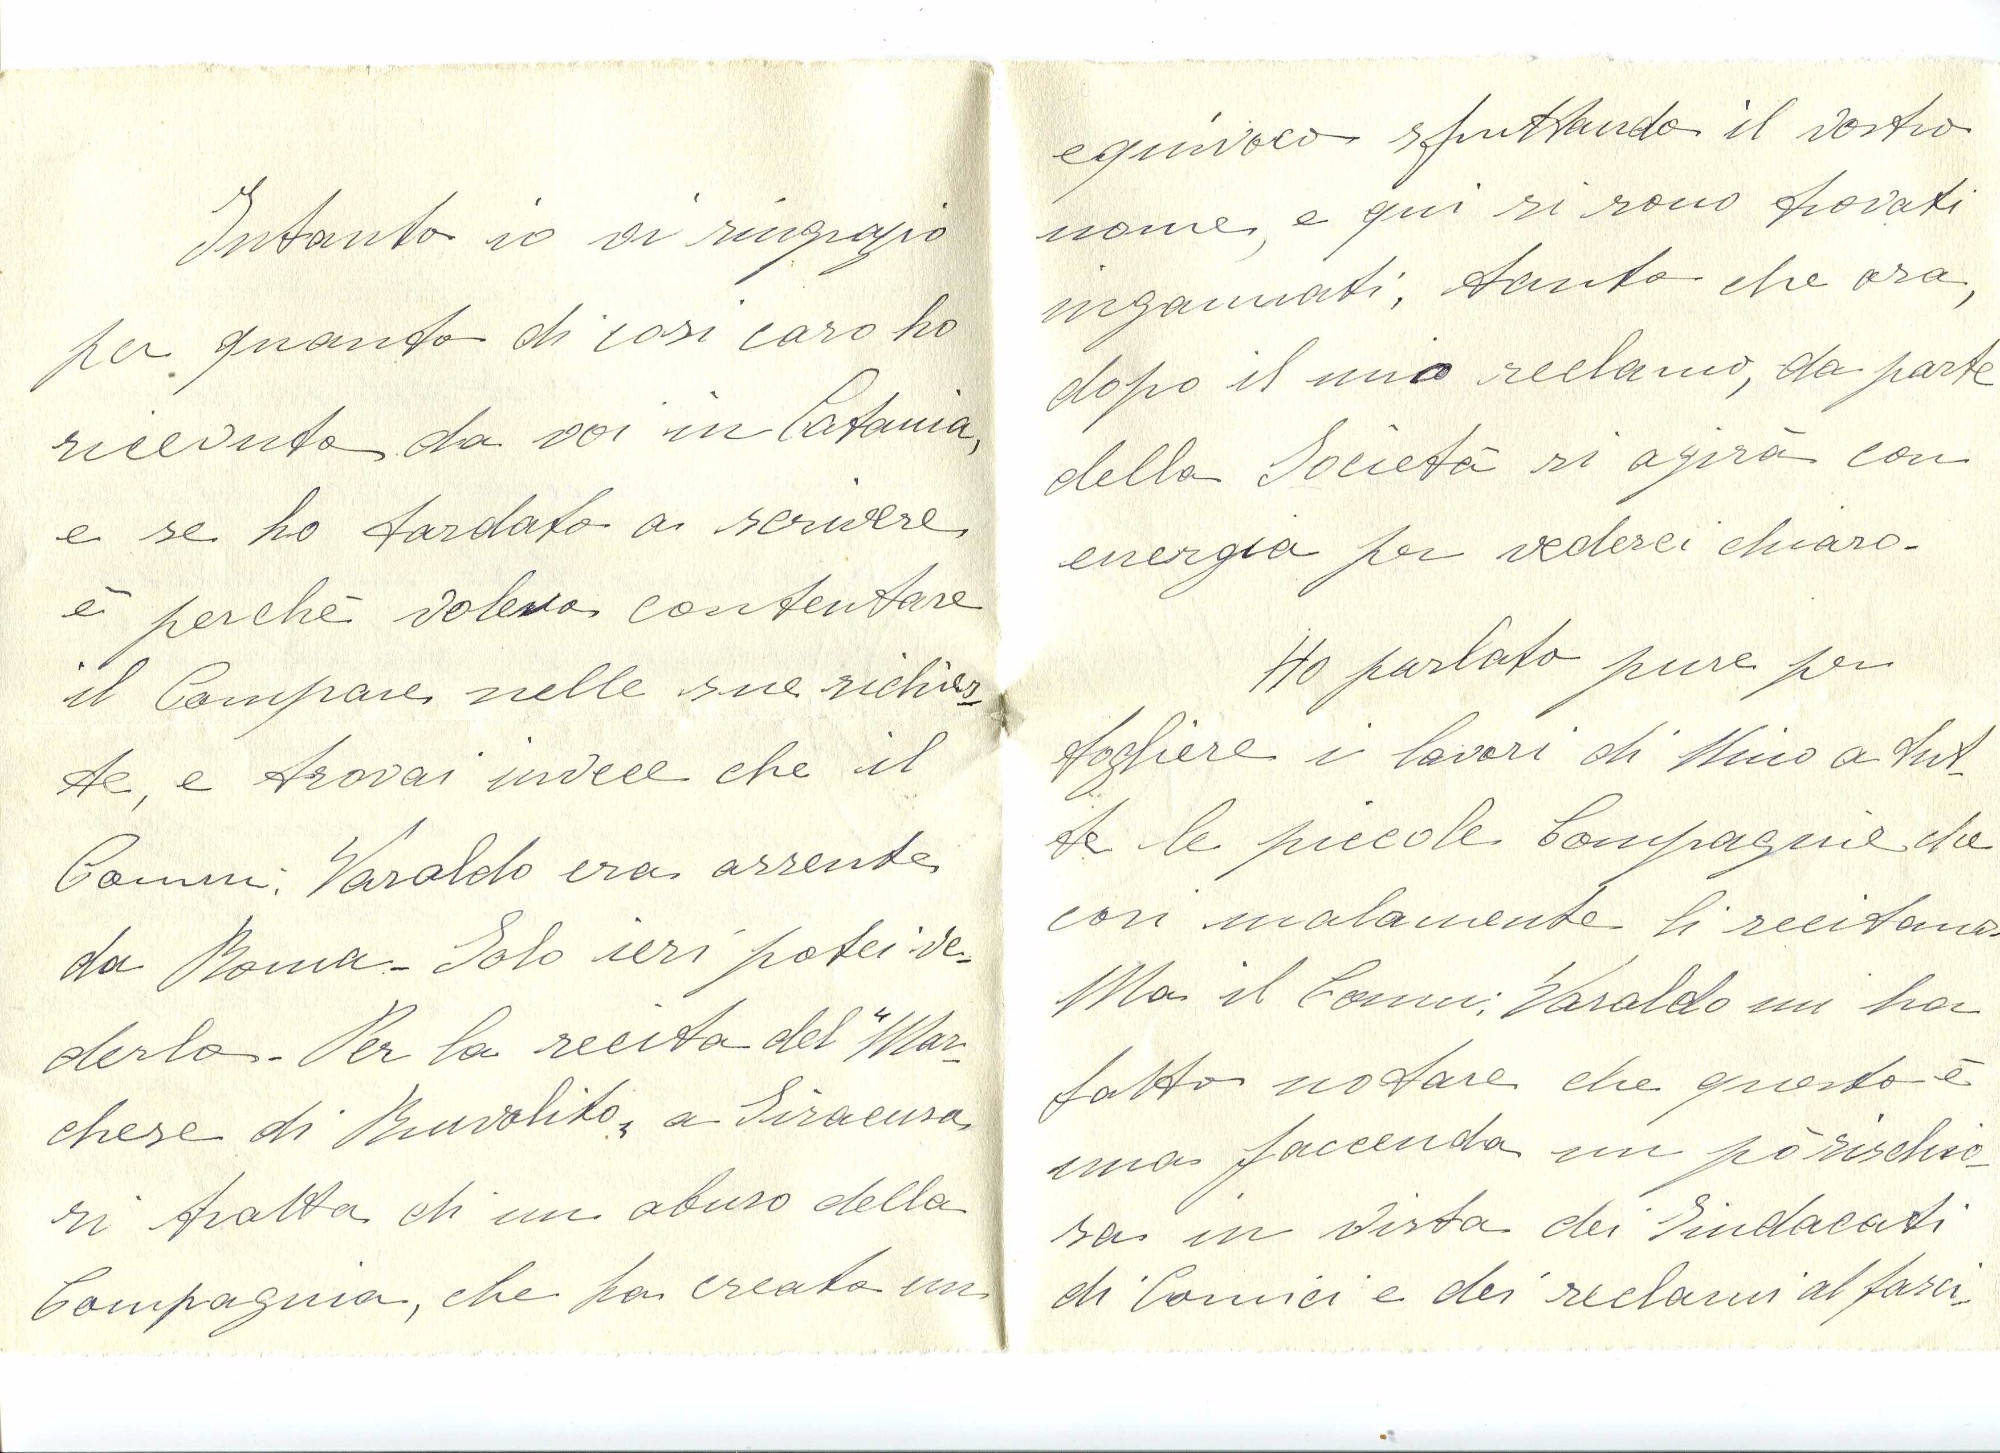 Intanto io vi ringrazio
per quanto di così caro ho
ricevuto da voi in Catania,
e se ho tardato a scrivere
è perchè volevo contentare
il Compare nelle sue richies-
te, e trovai invece che il
Comm: Varaldo era assente
da Roma - Solo ieri potei ve-
derlo - Per la recita del "Mar-
chese di Ruvolito" a Siracusa
si tratta di un abuso della
Compagnia, che ha creato un
equivoco sfruttando il vostro
nome, e qui si sono trovati
ingannati, tanto che ora,
dopo il mio reclamo, da parte
della Società si agirà con
energia per vederci chiaro -
Ho parlato pure per
togliere i lavori di Nino a tut-
te le piccole Compagnie che
così malamente li recitano
Ma il Comm: Varaldo mi ha
fatto notare che questo è
una faccenda un pò rischio-
sa in vista dei Sindacati
di Comici e dei reclami al fasci-